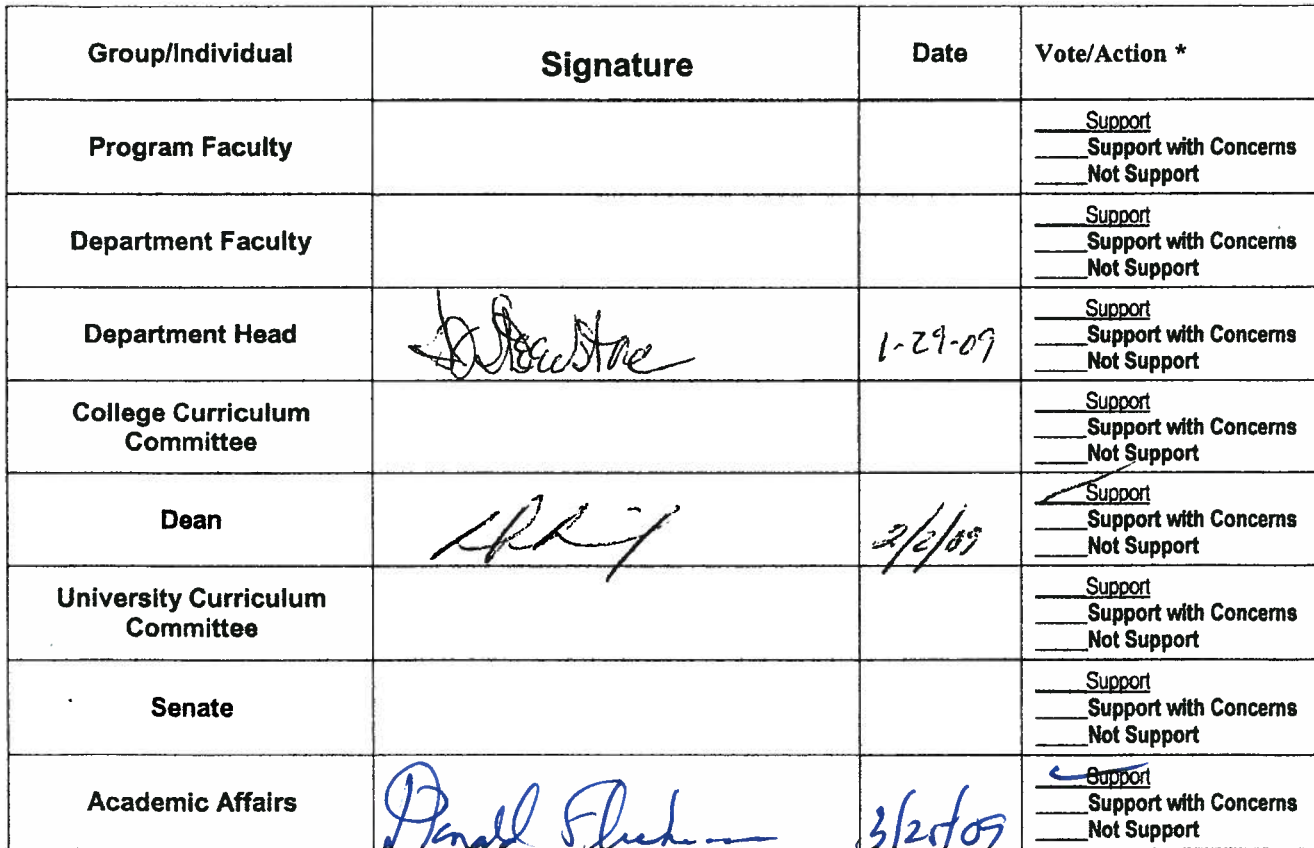 Group/Individual Signature Date Vote/Action *
Program Faculty
____Support
____Support with Concerns
____Not Support
Department Faculty
____Support
____Support with Concerns
____Not Support
Department Head 1-29-09
____Support
____Support with Concerns
____Not Support
College Curriculum
Committee
____Support
____Support with Concerns
____Not Support
Dean 2/2/09
____Support
____Support with Concerns
____Not Support
University Curriculum
Committee
____Support
____Support with Concerns
____Not Support
Senate
____Support
____Support with Concerns
____Not Support
Academic Affairs Donald 3/25/09
____Support
____Support with Concerns
____Not Support